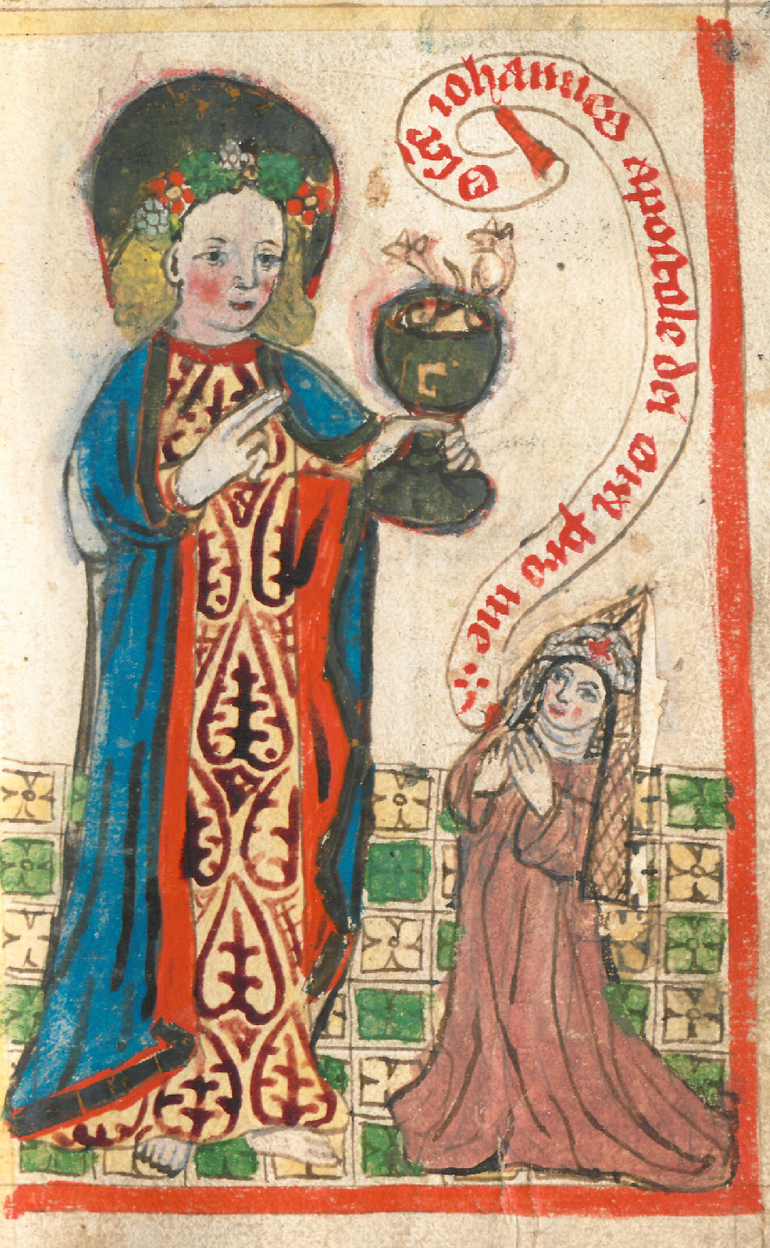 O sc̄e iohannes apostole dei ora pro me